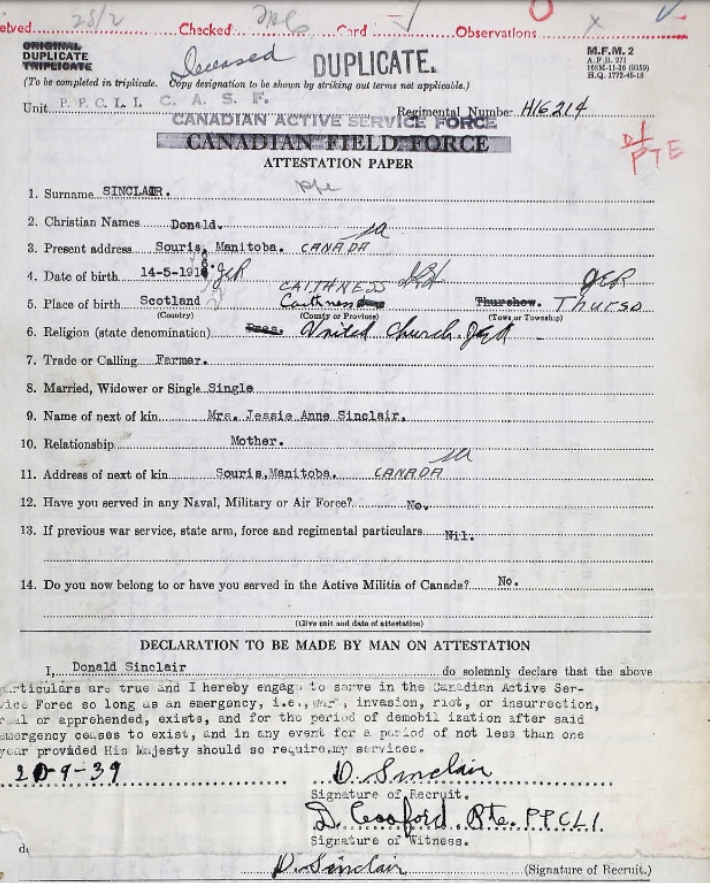 Checked Card Observations X
25/2
ORIGINAL
DUPLICATE
TRIPLICATE
Deceased
DUPLICATE.
M.F.M. 2
A.F.B. 271
H.Q. 1772-45-16
(To be completed in triplicate. Copy designation to be shown by striking out terms not applicable.)
Unit P. P. C. L. I. C. A. S. F. Regimental Number H/6214
CANADIAN ACTIVE SERVICE FORCE
CANADIAN FIELD FORCE
PTE
ATTESTATION PAPER
1. Surname SINCLAIR.
2. Christian Names Donald.
3. Present address Souris, Manitoba. CANADA
4. Date of birth 14-5-191
CAITHNESS
5. Place of birth Scotland Caithness Thurshow. Thurso
(Country) (County or Province) (Town or Township)
6. Religion (state denomination) Pres. United Church.
7. Trade or Calling Farmer.
8. Married, Widower or Single Single
9. Name of next of kin Mrs. Jessie Anne Sinclair.
10. Relationship Mother.
11. Address of next of kin Souris, Manitoba. CANADA
12. Have you served in any Naval, Military or Air Force? No.
13. If previous war service, state arm, force and regimental particulars Nil.
14. Do you now belong to or have you served in the Active Militia of Canada? No.
(Give unit and date of attestation)
DECLARATION TO BE MADE BY MAN ON ATTESTATION
I, Donald Sinclair do solemnly declare that the above
articulars are true and I hereby engage to serve in the Canadian Active Ser-
vice Force so long as an emergency, i.e., war, invasion, riot, or insurrection,
real or apprehended, exists, and for the period of demobil ization after said
emergency ceases to exist, and in any event for a period of not less than one
year provided His Majesty should so require my services.
20-9-39 D. Sinclair
Signature of Recruit.
Pte. PPCLI.
Signature of Witness.
D. Sinclair (Signature of Recruit.)